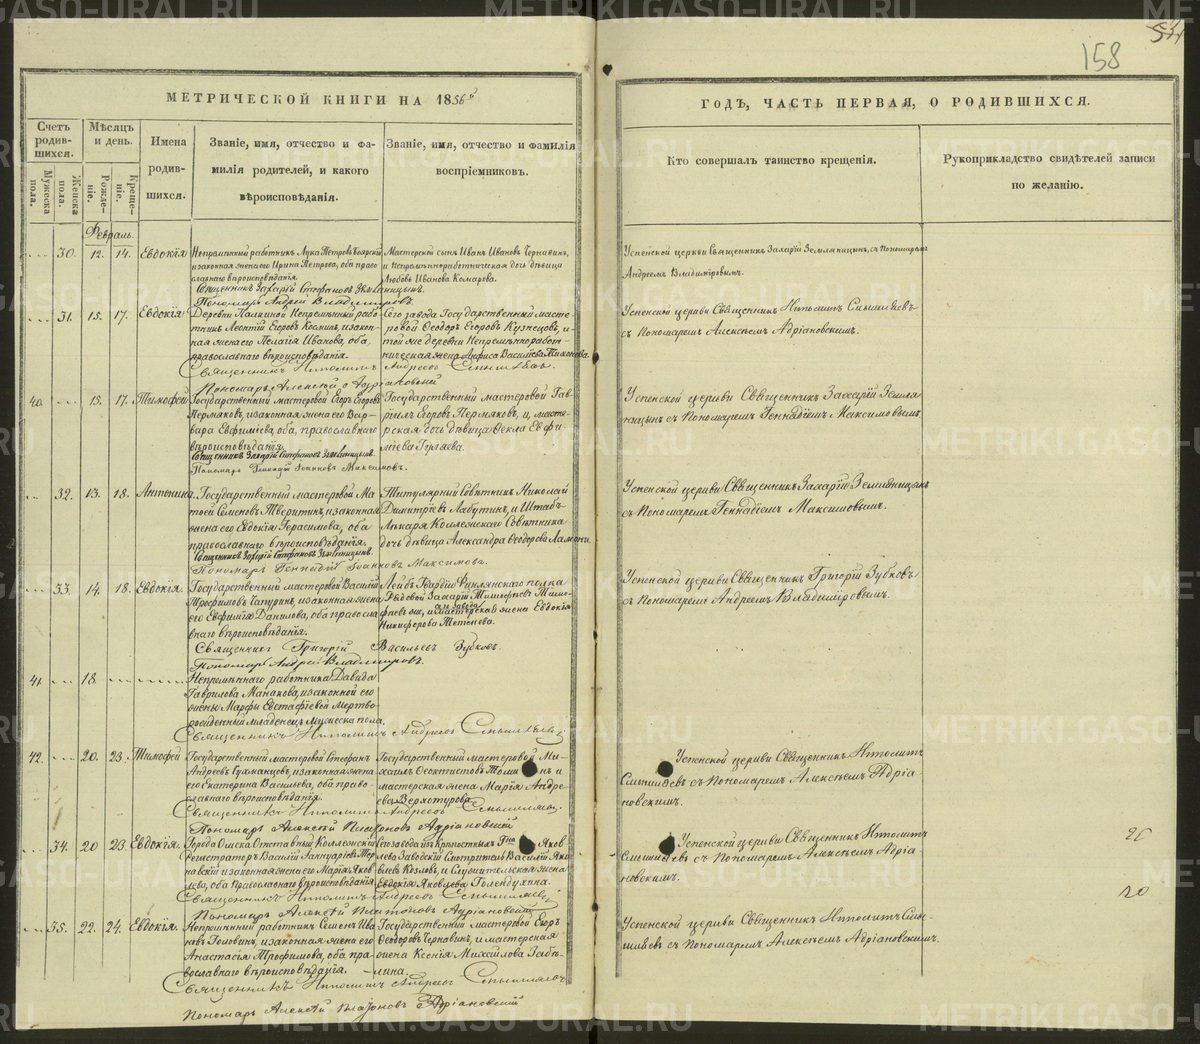 158
МЕТРИЧЕСКОЙ КНИГИ НА 1856й
ГОДЪ, ЧАСТЬ ПЕРВАЯ, О РОДИВШИХСЯ.
Счетъ родившихся.
Мужеска пола.
Женска пола.
Мѣсяцъ и день.
Рожденіе.
Крещеніе.
Имена родившихся.
Званіе, имя, отчество и фамилія родителей, и какого вѣроисповѣданія.
Званіе, имя, отчество и фамилія воспріемниковъ.
Кто совершалъ таинство крещенія.
Рукоприкладство свидѣтелей записи по желанію.
Февраль.
30. 12. 14. Евдокія
Непремѣнный работникъ Лука Петровъ
и законная жена его Ирина Петрова, оба православнаго вѣроисповѣданія.
Мастерской сынъ Иванъ Ивановъ
и Непремѣнноработническая дочь дѣвица
Любовь Иванова Комарова.
Священникъ Захарій Стефановъ Земляницынъ.
Пономарь Андрей Владимировъ.
Успенской церкви Священникъ Захарій Земляницынъ, съ Пономаремъ
Андреемъ Владиміровымъ.
31. 15. 17. Евдокія
Деревни Непремѣнный работникъ Леонтій Егоровъ
и законная жена его Пелагія Иванова, оба
православнаго вѣроисповѣданія.
Сего завода Государственный мастеровой Ѳеодоръ Егоровъ Кузнецовъ, и
той же деревни Непремѣнноработническая жена Анфиса Васильева
Священникъ Ипполитъ Андреевъ
Пономарь Алексѣй Адріановскій
Успенской церкви Священникъ Ипполитъ
съ Пономаремъ Алексѣемъ Адріановскимъ.
40. 15. 17. Тимофей
Государственный мастеровой Егоръ Егоровъ
Пермяковъ, и законная жена его Варвара Евфиміева, оба, православнаго
вѣроисповѣданія.
Государственный мастеровой Гавріилъ Егоровъ Пермяковъ, и, мастерская дочь дѣвица Ѳекла Евфиміева
Священникъ Захарій Стефановъ Земляницынъ.
Пономарь Геннадій Іоанновъ Максимовъ.
Успенской церкви Священникъ Захарій Земляницынъ съ Пономаремъ Геннадіемъ Максимовымъ.
32. 13. 18. Антонина
Государственный мастеровой Матвей Семеновъ Тверитинъ, и законная
жена его Евдокія Герасимова, оба
православнаго вѣроисповѣданія.
Титулярный Совѣтникъ Николай
Димитріевъ Лабутинъ, и Штабъ-Лѣкаря Коллежскаго Совѣтника
дочь дѣвица Александра Ѳеодорова
Священникъ Захарій Стефановъ Земляницынъ.
Пономарь Геннадій Іоанновъ Максимовъ.
Успенской церкви Священникъ Захарій Земляницынъ
съ Пономаремъ Геннадіемъ Максимовымъ.
33. 14. 18. Евдокія
Государственный мастеровой Василій
Трофимовъ и законная жена
его Евфимія Данилова, оба православнаго вѣроисповѣданія.
Лейбъ Гвардіи Финлянскаго полка
Рядовой Захарій Тимофѣевъ
и мастерская жена Евдокія
Никифорова
Священникъ Григорій Васильевъ Зубковъ.
Пономарь Андрей Владимировъ.
Успенской церкви Священникъ Григорій Зубковъ
съ Пономаремъ Андреемъ Владиміровымъ.
41. 18.
Непремѣннаго работника Давида
Гаврилова и законной его
жены Марфы Евстафіевой Мертворожденный младенецъ Мужеска пола.
Священникъ Ипполитъ Андреевъ
42. 20. 23. Тимофей
Государственный мастеровой Стефанъ
Андреевъ и законная жена
его Екатерина Васильева, оба православнаго вѣроисповѣданія.
Государственный мастеровой Михаилъ Ѳеоктистовъ
мастерская жена Марія Андреева Верхотурова.
Священникъ Ипполитъ Андреевъ
Пономарь Алексѣй Платоновъ Адріановскій
Успенской церкви Священникъ Ипполитъ
съ Пономаремъ Алексѣемъ Адріановскимъ.
34. 20 23 Евдокія
Города Омска Отставный Коллежскій
Регистраторъ Василій
и законная жена его Марія Яковлева, оба Православнаго вѣроисповѣданія
Заводскій Смотритель Василій Яковлевъ Козловъ, и Служительская жена
Евдокія Яковлева Голендухина.
Священникъ Ипполитъ Андреевъ
Пономарь Алексѣй Платоновъ Адріановскій
Успенской церкви Священникъ Ипполитъ
съ Пономаремъ Алексѣемъ Адріановскимъ.
26
20
35. 22. 24. Евдокія.
Непремѣнный работникъ Семенъ Ивановъ Головинъ, и законная жена его
Анастасія Трофимова, оба, православнаго вѣроисповѣданія.
Государственный мастеровой Егоръ
Ѳеодоровъ и мастерская
жена Ксенія Михайлова
Священникъ Ипполитъ Андреевъ
Пономарь Алексѣй Платоновъ Адріановскій
Успенской церкви Священникъ Ипполитъ
съ Пономаремъ Алексѣемъ Адріановскимъ.
METRIKI.GASO-URAL.RU